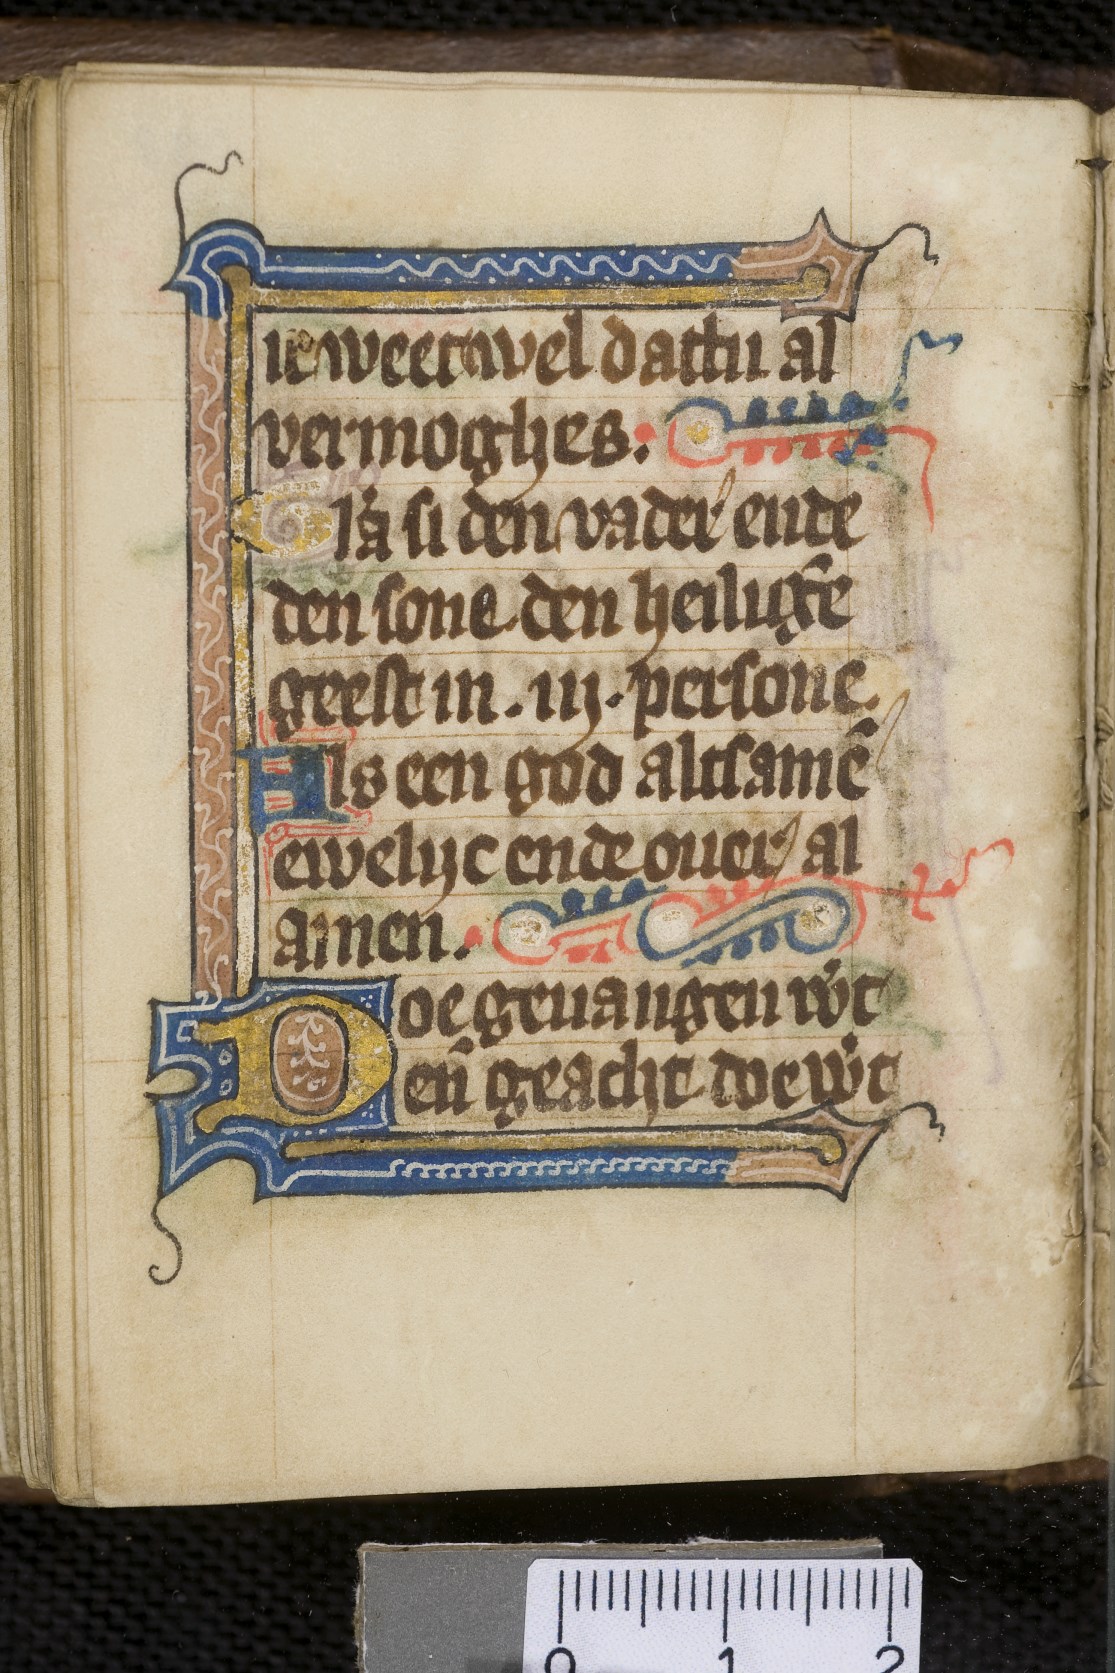 ic weet wel dattu al
vermoghes.
Gl'a si den vader ende
den sone den heiligē
geest in . iij . persone.
Als een god altsamē
ewelijc ende ouer al
amen.
Doe geuangen w't
en̄ geacht doe w't
0 1 2